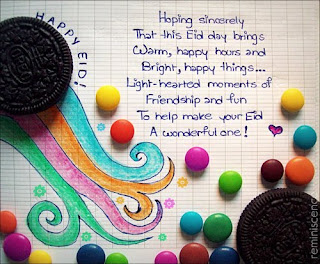 HAPPY EID!
Hoping sincerely
That this Eid day brings
Warm, happy hours and
Bright, happy things...
Light-hearted moments of
Friendship and fun
To help make your Eid
A wonderful one!
reminiscenc